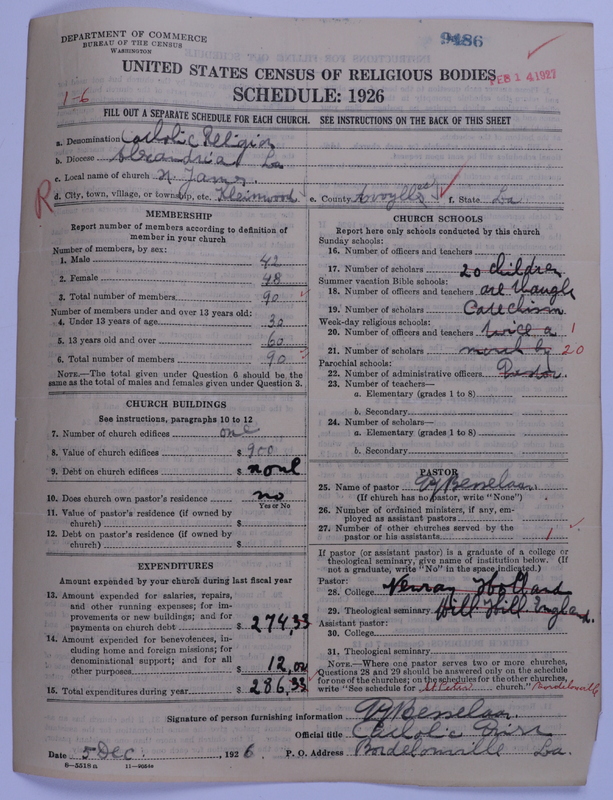 DEPARTMENT OF COMMERCE
BUREAU OF THE CENSUS
WASHINGTON
9486
FEB 14 1927
UNITED STATES CENSUS OF RELIGIOUS BODIES
SCHEDULE: 1926
1-6
FILL OUT A SEPARATE SCHEDULE FOR EACH CHURCH. SEE INSTRUCTIONS ON THE BACK OF THIS SHEET
a. Denomination Catholic Religion
b. Diocese Alexandria La
c. Local name of church St. James.
R
d. City, town, village, or township, etc. Kleinwood e. County Avoylles f. State La
MEMBERSHIP
Report number of members according to definition of member in your church
Number of members, by sex:
1. Male 42
2. Female 48
3. Total number of members 90
Number of members under and over 13 years old:
4. Under 13 years of age 30
5. 13 years old and over 60
6. Total number of members 90
NOTE.—The total given under Question 6 should be the same as the total of males and females given under Question 3.
CHURCH BUILDINGS
See instructions, paragraphs 10 to 12
7. Number of church edifices one
8. Value of church edifices $ 900
9. Debt on church edifices $ none
10. Does church own pastor's residence no
Yes or No
11. Value of pastor's residence (if owned by church) $
12. Debt on pastor's residence (if owned by church) $
EXPENDITURES
Amount expended by your church during last fiscal year
13. Amount expended for salaries, repairs, and other running expenses; for improvements or new buildings; and for payments on church debt $ 274,33
14. Amount expended for benevolences, including home and foreign missions; for denominational support; and for all other purposes $ 12,00
15. Total expenditures during year $ 286,33
CHURCH SCHOOLS
Report here only schools conducted by this church
Sunday schools:
16. Number of officers and teachers
17. Number of scholars 20 children
Summer vacation Bible schools:
18. Number of officers and teachers are taught
19. Number of scholars Catechism
Week-day religious schools:
20. Number of officers and teachers twice a 1
21. Number of scholars month by 20
Parochial schools:
22. Number of administrative officers Pastor.
23. Number of teachers—
a. Elementary (grades 1 to 8)
b. Secondary
24. Number of scholars—
a. Elementary (grades 1 to 8)
b. Secondary
PASTOR
25. Name of pastor
(If church has no pastor, write "None")
26. Number of ordained ministers, if any, employed as assistant pastors
27. Number of other churches served by the pastor or his assistants 1
If pastor (or assistant pastor) is a graduate of a college or theological seminary, give name of institution below. (If not a graduate, write "No" in the space indicated.)
Pastor:
28. College Holland
29. Theological seminary Mill Hill England.
Assistant pastor:
30. College
31. Theological seminary
NOTE.—Where one pastor serves two or more churches, Questions 28 and 29 should be answered only on the schedule for one of the churches; on the schedules for the other churches, write "See schedule for St Peters church." Bordelonville
Signature of person furnishing information
Official title Catholic
Date 5 Dec., 1926. P. O. Address Bordelonville La.
8-5518a 11-9554a